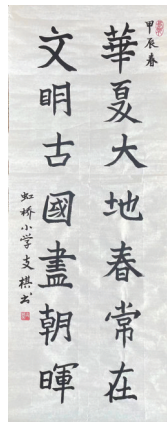 甲辰春
華夏大地春常在
文明古國盡朝暉
虹桥小学 支棋书